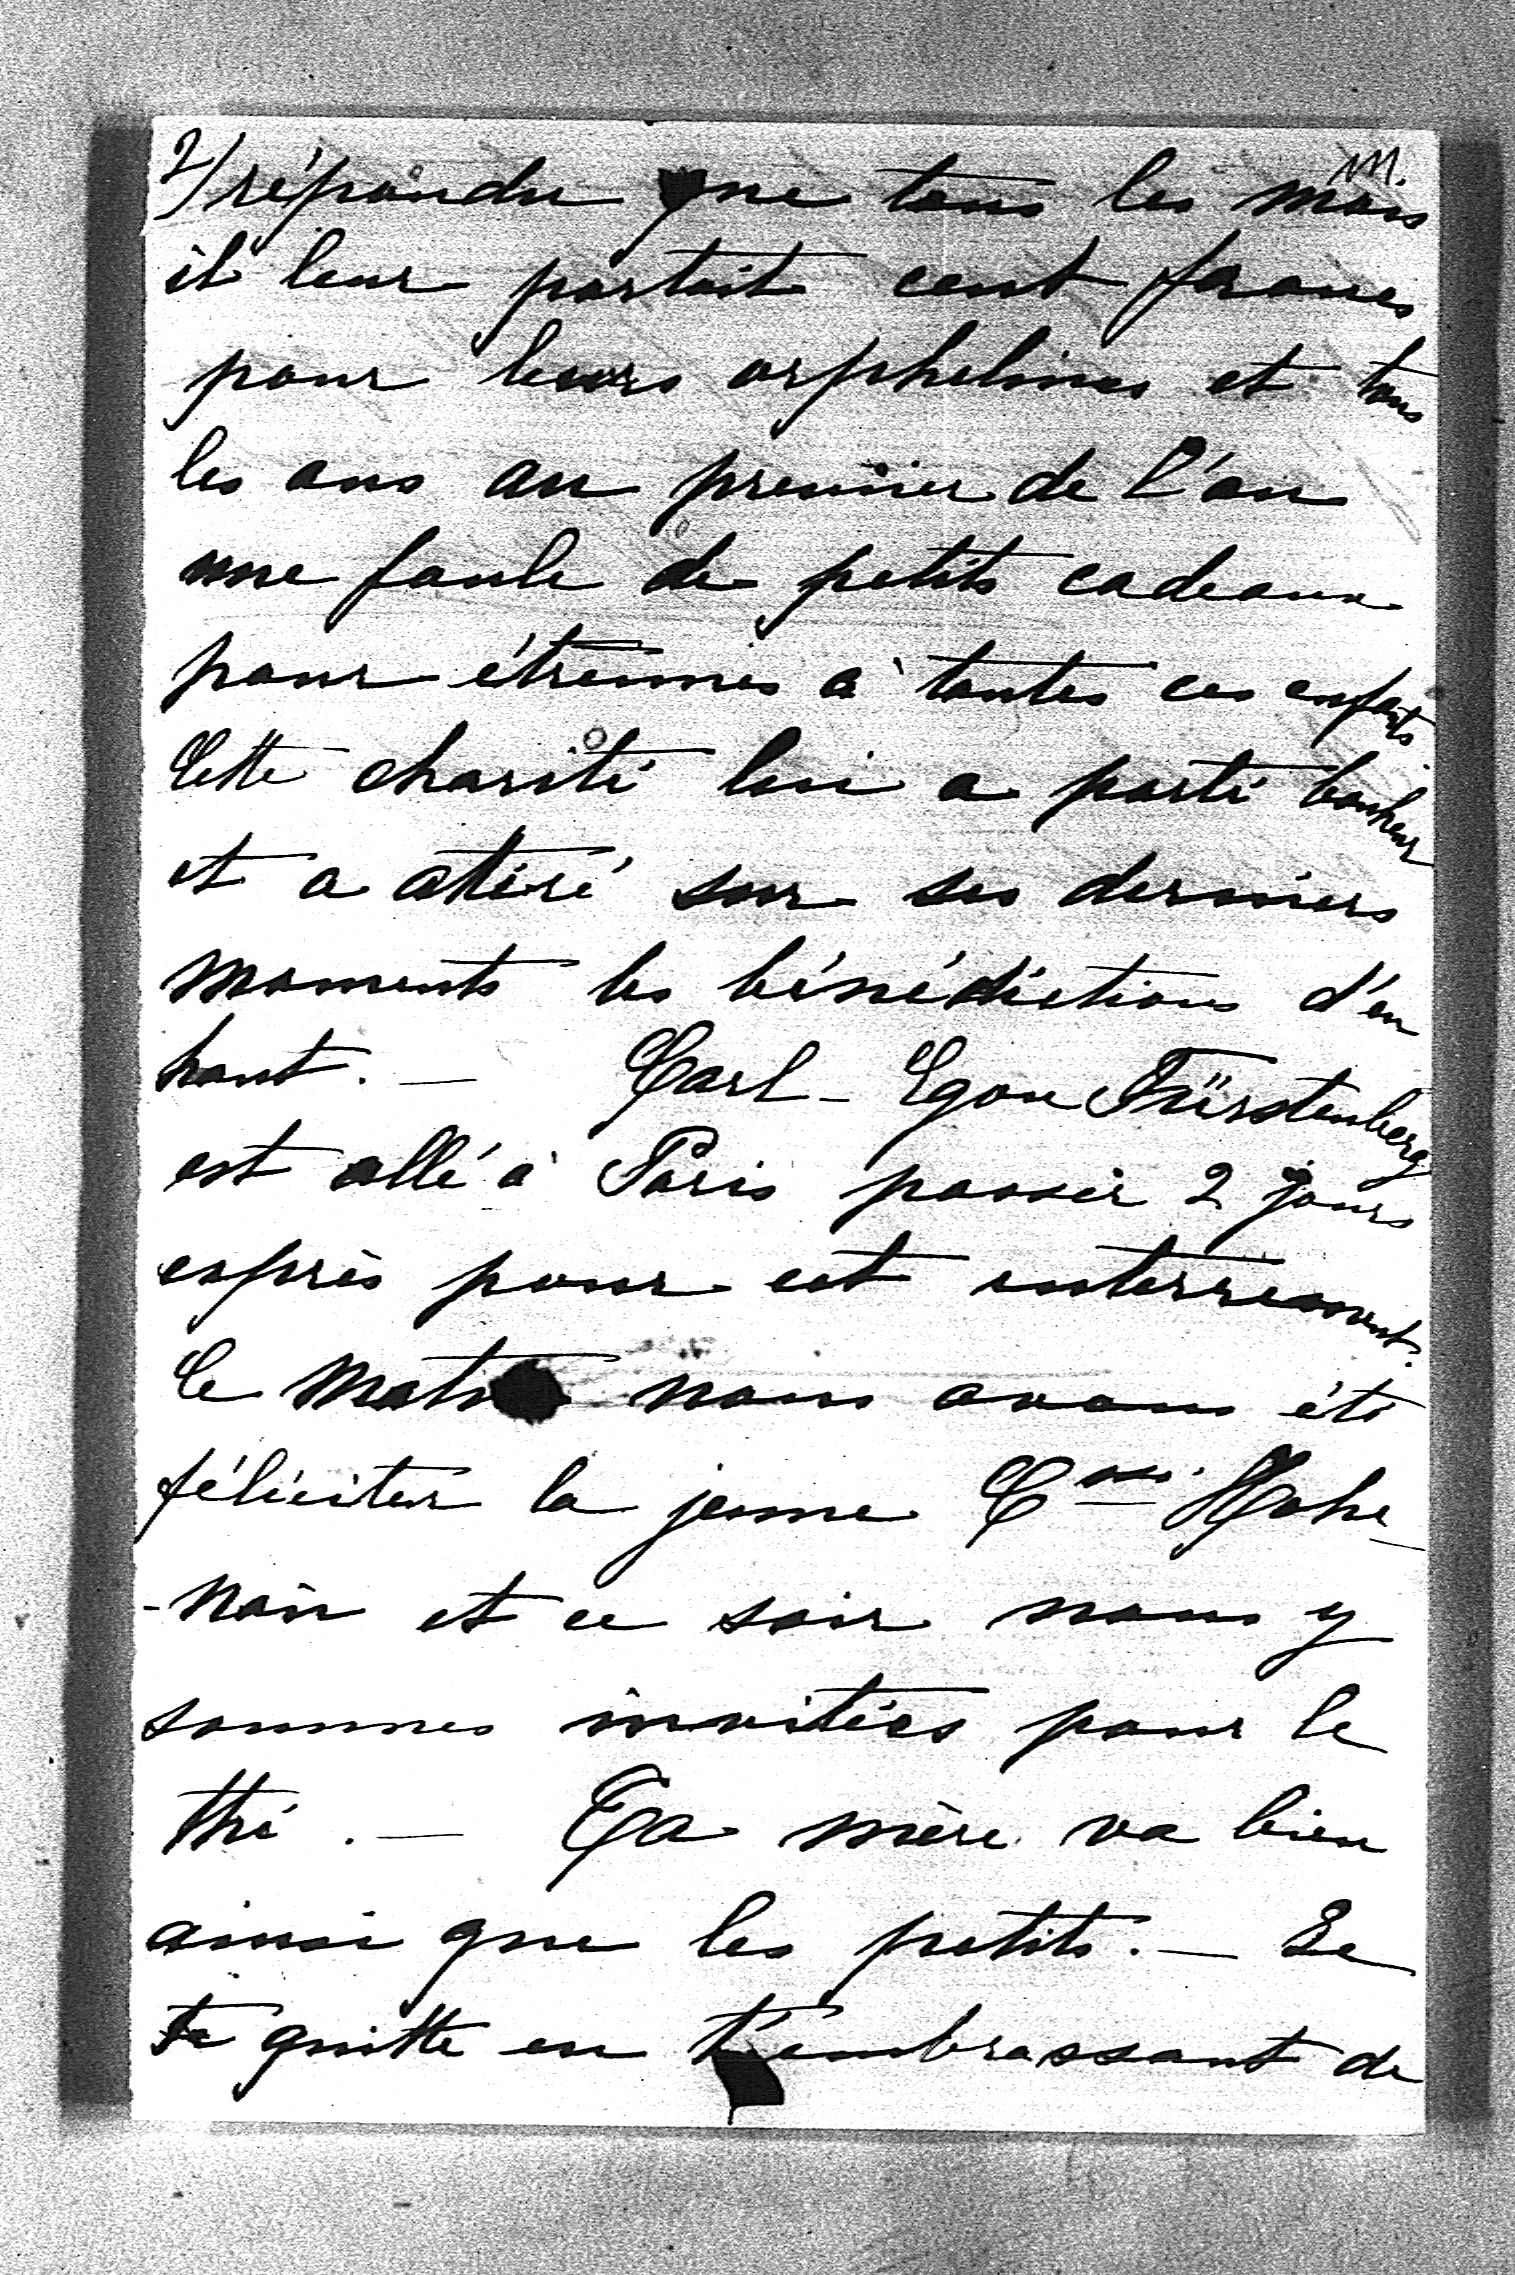 2/ répondu que tous les mois
m.
il leur portait cent francs
pour leurs orphelines et tous
les ans au premier de l'an
une foule de petits cadeaux
pour étrennes à toutes ces enfants
Cette charité lui a porté bonheur
et a attiré sur ses derniers
moments les bénédictions d'en
haut. — Carl-Egon Fürstenberg
est allé à Paris passer 2 jours
exprès pour cet enterrement.
Ce matin nous avons été
féliciter la jeune Csse Hohe-
-nau et ce soir nous y
sommes invitées pour le
thé. — Ta mère va bien
ainsi que les petits. — Je
te quitte en t'embrassant de